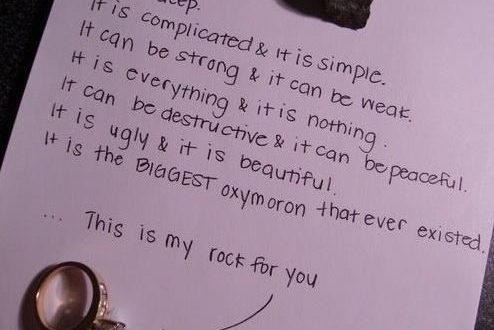 It is complicated & It is simple.
It can be strong & it can be weak.
It is everything & it is nothing.
It can be destructive & it can be peaceful.
It is ugly & it is beautiful.
It is the BIGGEST oxymoron that ever existed.
... This is my rock for you